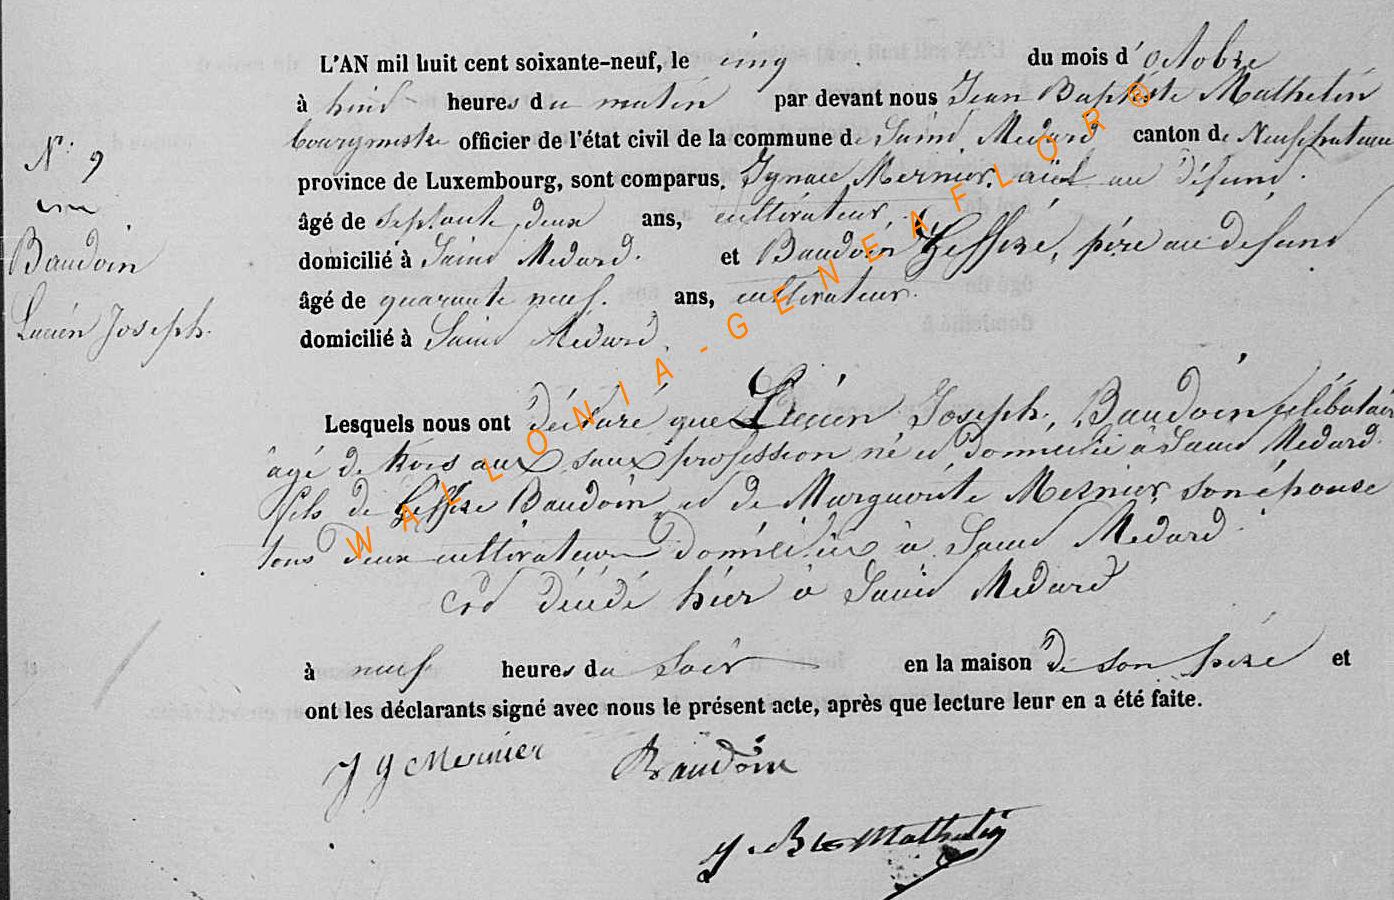 L'AN mil huit cent soixante-neuf, le cinq du mois d'octobre
à huit heures du matin par devant nous Jean Baptiste Mathelin
bourgmestre officier de l'état civil de la commune de Saint Medard canton de Neufchateau
N° 9
province de Luxembourg, sont comparus, Ignace Mernier, aieul au défunt.
âgé de septante deux ans, cultivateur,
Baudoin
domicilié à Saint Medard. et Baudoin Geffiré, père au défunt
âgé de quarante neuf. ans, cultivateur.
Lucien Joseph.
domicilié à Saint Médard.
Lesquels nous ont déclaré que Lucien Joseph, Baudoin célibataire
âgé de trois ans sans profession né et domicilié à Saint Medard.
fils de Baudoin et de Marguerite Mernier son épouse
tous deux cultivateurs domiciliés à Saint Medard
est décédé hier à Saint Medard
à neuf heures du soir en la maison de son père et
ont les déclarants signé avec nous le présent acte, après que lecture leur en a été faite.
J J Mernier Baudoin
J. Bte Mathelin
WALLONIA-GENEAFLOR®